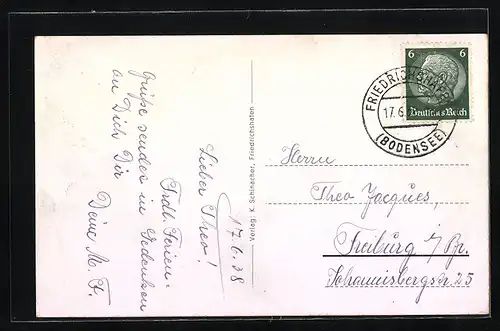 17.6.38
Lieber Theo!
Frdl. Ferien-
Grüße sendet in Gedenken
an Dich Dir
Deine M. F.
Verlag: K. Schinacher, Friedrichshafen
6 6
Deutsches Reich
FRIEDRICHSHAFEN
17.6.
(BODENSEE)
Herrn
Theo Jacques,
Freiburg i/Br.
Johannisbergstr 25